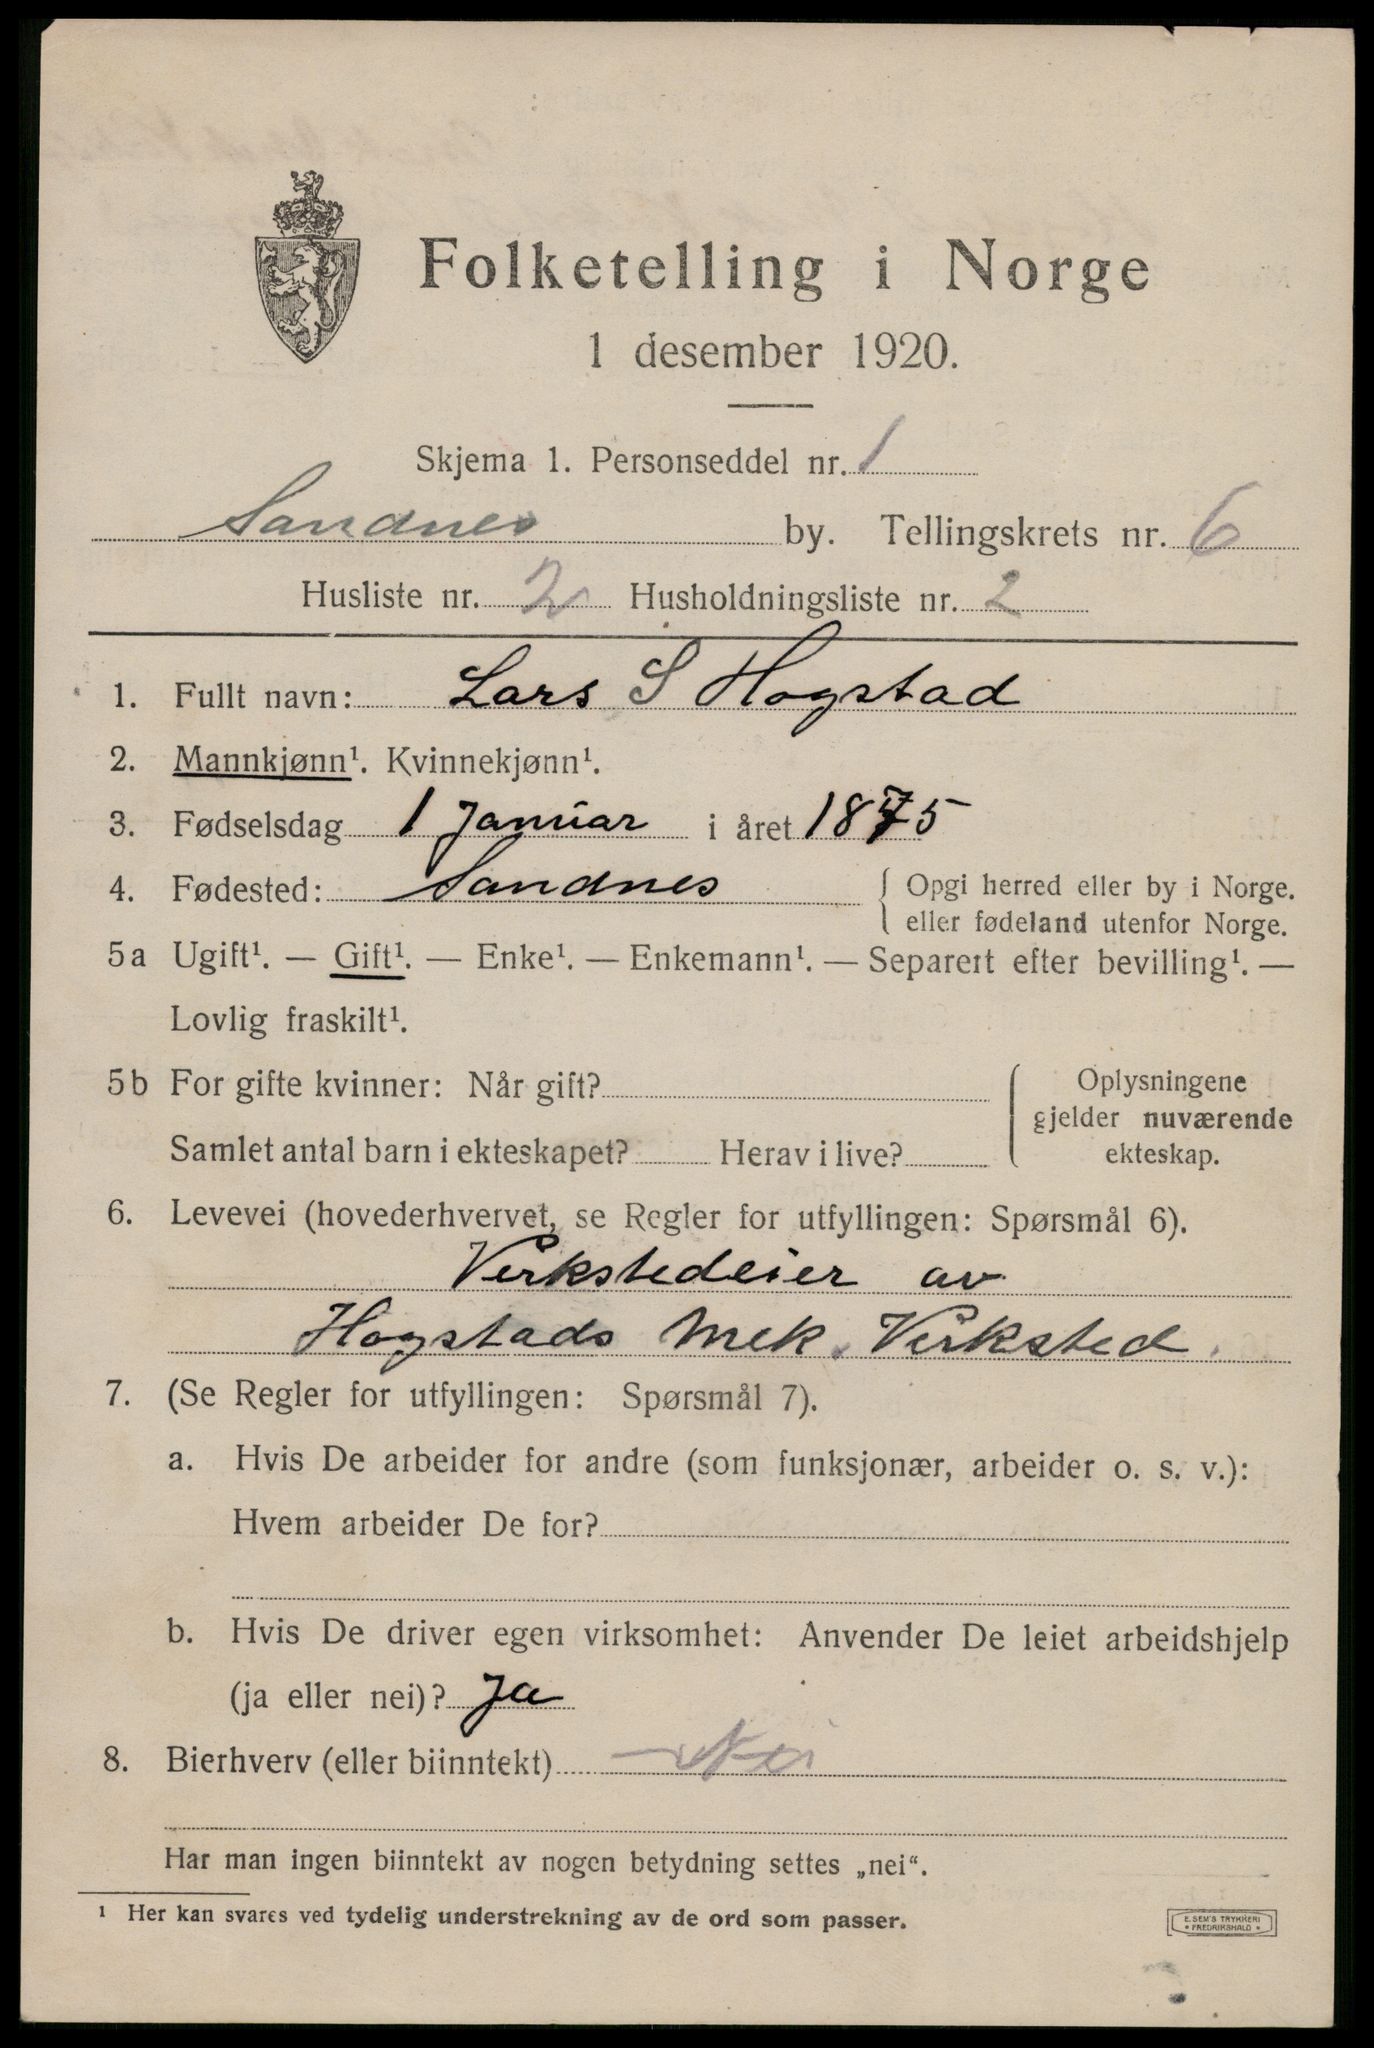 Folketelling i Norge
1 desember 1920.
Skjema 1. Personseddel nr. 1
Sandnes by. Tellingskrets nr. 6
Husliste nr. 2 Husholdningsliste nr. 2
1. Fullt navn: Lars S Hogstad
2. Mannkjønn¹. Kvinnekjønn¹.
3. Fødselsdag 1 Januar i året 1875
4. Fødested: Sandnes { Opgi herred eller by i Norge.
eller fødeland utenfor Norge.
5a Ugift¹. — Gift¹. — Enke¹. — Enkemann¹. — Separert efter bevilling¹. —
Lovlig fraskilt¹.
5b For gifte kvinner: Når gift? Oplysningene
gjelder nuværende
Samlet antal barn i ekteskapet? Herav i live? ekteskap.
6. Levevei (hovederhvervet, se Regler for utfyllingen: Spørsmål 6).
Verkstedeier av
Hogstads Mek. Verksted.
7. (Se Regler for utfyllingen: Spørsmål 7).
a. Hvis De arbeider for andre (som funksjonær, arbeider o. s. v.):
Hvem arbeider De for?
b. Hvis De driver egen virksomhet: Anvender De leiet arbeidshjelp
(ja eller nei)? Ja
8. Bierhverv (eller biinntekt) Nei
Har man ingen biinntekt av nogen betydning settes „nei“.
¹ Her kan svares ved tydelig understrekning av de ord som passer.
E. SEM'S TRYKKERI
* FREDRIKSHALD *